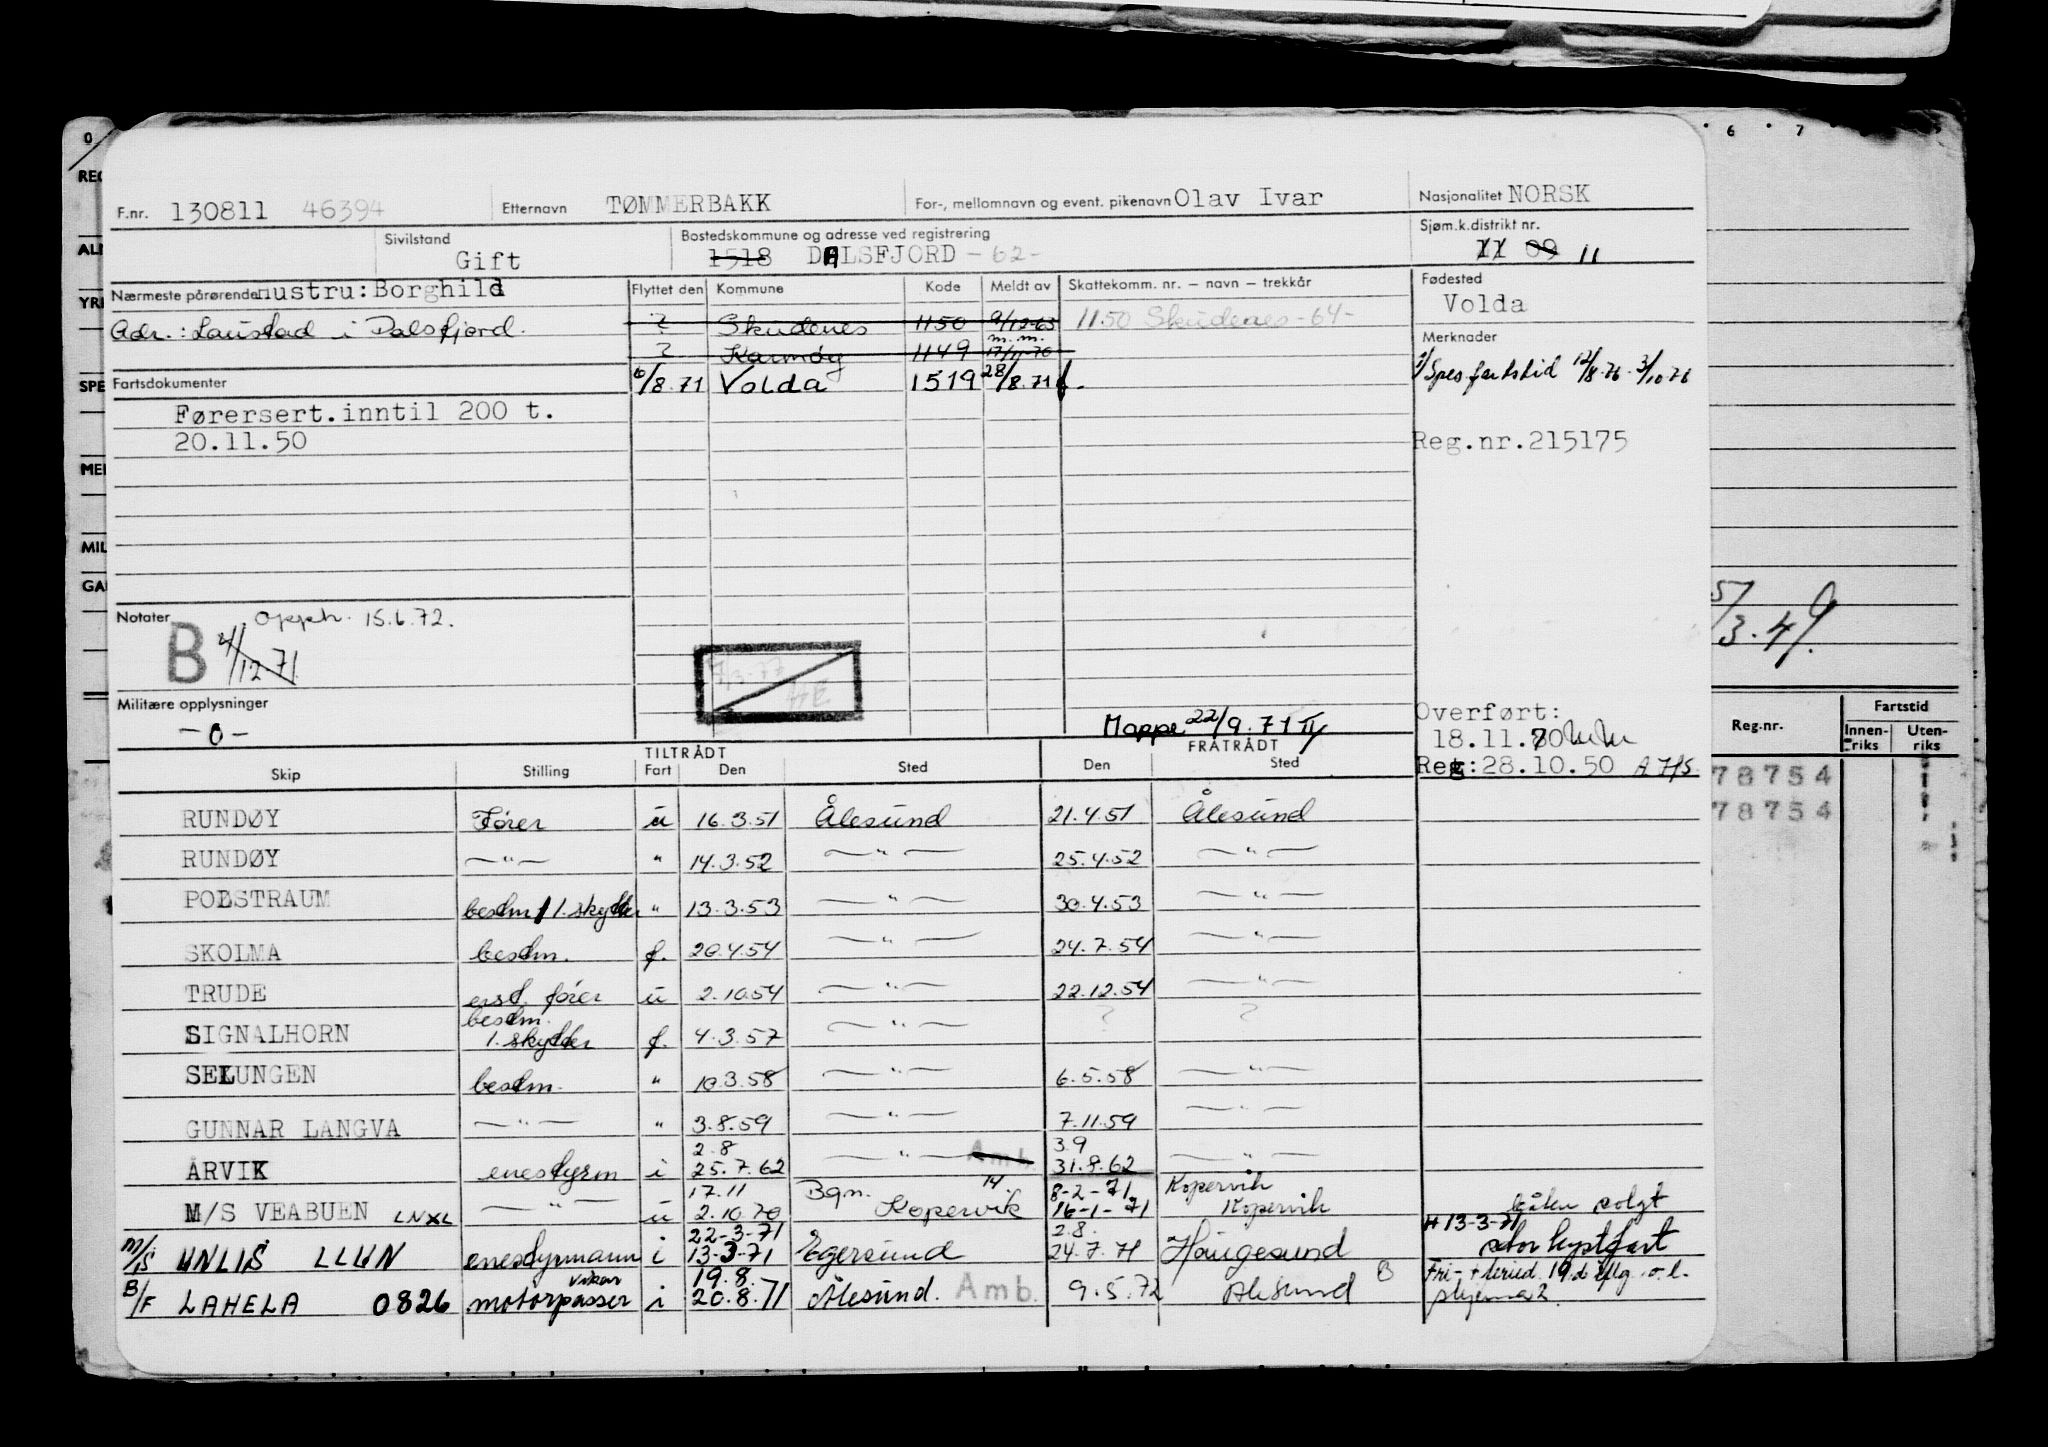 0 6 7
F.nr. 130811 46394 Etternavn TØMMERBAKK For-, mellomnavn og event. pikenavn Olav Ivar Nasjonalitet NORSK
Sivilstand Bostedskommune og adresse ved registrering Sjøm.k.distrikt nr.
Gift 1518 DALSFJORD -62- 11 09 11
Nærmeste pårørende hustru: Borghild Flyttet den Kommune Kode Meldt av Skattekomm. nr. – navn – trekkår Fødested
Volda
Adr.: Laustad i Dalsfjord. ? Skudenes 1150 9/12-63 1150 Skudenes -64-
Merknader
? Karmøy 1149 m.m. 17/11-70
Fartsdokumenter 6/8.71 Volda 1519 28/8.71 1/ Spes fartstid 12/8.76 - 3/10 76
Førersert.inntil 200 t.
20.11.50 Reg.nr.215175
Notater Opph. 15.6.72.
B 4/12-71
5/3.49.
7/3-77
Militære opplysninger
-0-
Mappe 22/9.71
Overført:
18.11.70
Reg:28.10.50 A 7/5
Reg.nr. Fartstid
Innen-riks Uten-riks
78754
78754
TILTRÅDT FRATRÅDT
Skip Stilling Fart Den Sted Den Sted
RUNDØY Fører u 16.3.51 Ålesund 21.4.51 Ålesund
RUNDØY —"— " 14.3.52 —"— 25.4.52 —"—
POLSTRAUM bestm/1.skytter " 13.3.53 —"— 30.4.53 —"—
SKOLMA bestm. f. 20.4.54 —"— 24.7.54 —"—
TRUDE erst. fører u 2.10.54 —"— 22.12.54 —"—
SIGNALHORN bestm. 1. skytter f. 4.3.57 —"— ? ?
SELUNGEN bestm. " 10.3.58 —"— 6.5.58 —"—
GUNNAR LANGVA —"— " 3.8.59 —"— 7.11.59 —"—
2.8 3.9
ÅRVIK enestyrm i 25.7.62 —"— Amb. 31.8.62 —"—
17.11 Bgn. 14 8-2-71 Kopervik
M/S VEABUEN LNXL —"— u 2.10.70 Kopervik 16-1-71 Kopervik båten solgt
22-3-71 2.8. H 13-3-71
M/S UNLIS LLUN enestyrmann i 13-3-71 Egersund 24.7.71 Haugesund stor kystfart
vikar 19.8. B
B/F LAHELA 0826 motorpasser i 20.8.71 Ålesund. Amb. 9.5.72 Ålesund skjema 2